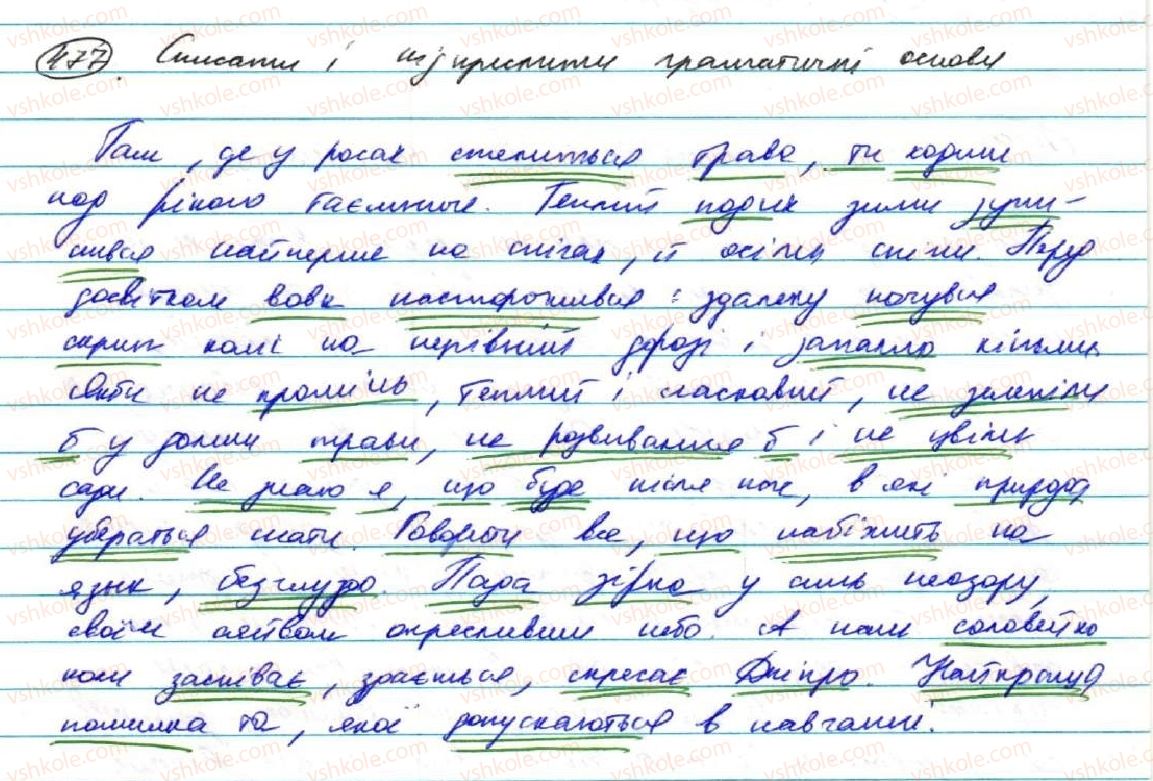 477. Списати і підкреслити граматичні основи
Там, де у росах стелиться трава, ти ходиш
над рікою таємниче. Теплий подих зими зупи-
нився найперше на снігах, й осінь
досвітком вовк насторожився: здалеку почувся
скрип коліс на нерівній дорозі і запахло кіньми
Якби не промінь, теплий і ласкавий, не зеленіли
б у долині трави, не розвивались б і не цвіли
сади. Не знаю я, що буде після нас, в які природа
убереться шати. Говорити все, що набіжить на
язик, безглуздо. Пада зірка у синь неозору,
своїм сяйвом окресливши небо. А коли соловейко
нам заспіває, здається, скресає Дніпро. Найкраща
помилка та, якої допускаються в навчанні.